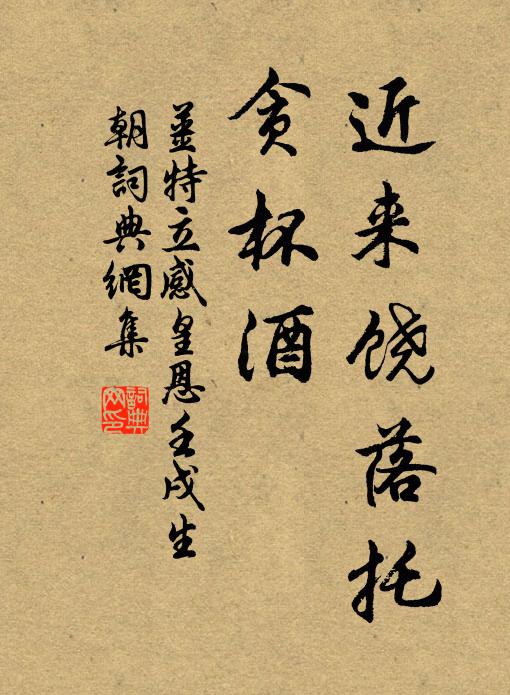 近来饶落托
贪杯酒
姜特立感皇恩壬戌生
朝詞典網集
詞典网印